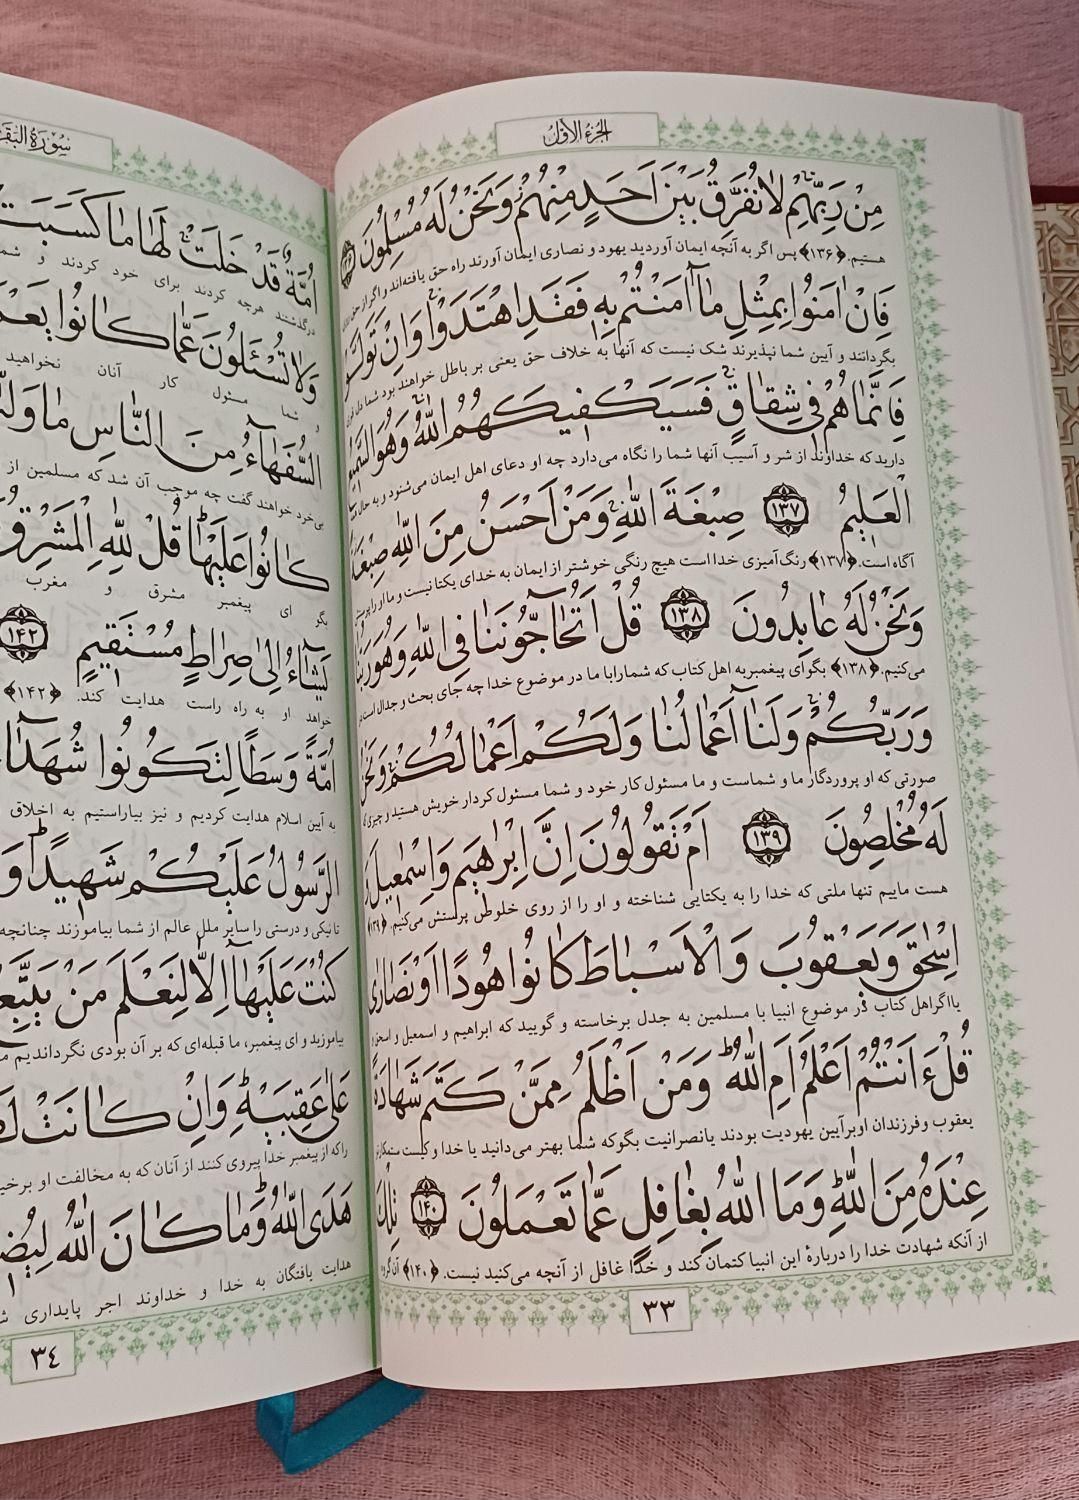 الجزء الاول
مِنْ رَبِّهِمْ لَا نُفَرِّقُ بَيْنَ اَحَدٍ مِنْهُمْ وَنَحْنُ لَهُ مُسْلِمُونَ ١٣٦
هستیم.﴿۱۳۶﴾ پس اگر به آنچه ایمان آوردید یهود و نصاری ایمان آورند راه حق یافته‌اند و اگر از حق
فَاِنْ اٰمَنُوا بِمِثْلِ مَآ اٰمَنْتُمْ بِهِ فَقَدِ اهْتَدَوْا وَاِنْ تَوَلَّوْا
بگردانند و آیین شما نپذیرند شک نیست که آنها به خلاف حق یعنی بر باطل خواهند بود شما دل قوی
فَاِنَّمَا هُمْ فِي شِقَاقٍ فَسَيَكْفِيكَهُمُ اللّٰهُ وَهُوَ السَّمِيعُ
دارید که خداوند از شر و آسیب آنها شما را نگاه می‌دارد چه او دعای اهل ایمان می‌شنود و به حال
الْعَلِيمُ ١٣٧ صِبْغَةَ اللّٰهِ وَمَنْ اَحْسَنُ مِنَ اللّٰهِ صِبْغَةً
آگاه است.﴿۱۳۷﴾ رنگ‌آمیزی خدا است هیچ رنگی خوشتر از ایمان به خدای یکتا نیست و ما او را
وَنَحْنُ لَهُ عَابِدُونَ ١٣٨ قُلْ اَتُحَآجُّونَنَا فِي اللّٰهِ وَهُوَ رَبُّنَا
می‌کنیم.﴿۱۳۸﴾ بگو ای پیغمبر به اهل کتاب که شما را با ما در موضوع خدا چه جای بحث و جدال است در
وَرَبُّكُمْ وَلَنَآ اَعْمَالُنَا وَلَكُمْ اَعْمَالُكُمْ وَنَحْنُ
صورتی که او پروردگار ما و شماست و ما مسئول کار خود و شما مسئول کردار خویش هستید و چیزی که
لَهُ مُخْلِصُونَ ١٣٩ اَمْ تَقُولُونَ اِنَّ اِبْرٰهِيمَ وَاِسْمٰعِيلَ وَ
هست ماییم تنها ملتی که خدا را به یکتایی شناخته و او را از روی خلوص پرستش می‌کنیم. ﴿۱۳۹﴾
اِسْحٰقَ وَيَعْقُوبَ وَالْاَسْبَاطَ كَانُوا هُودًا اَوْ نَصَارٰى
یا اگر اهل کتاب در موضوع انبیا با مسلمین به جدل برخاسته و گویید که ابراهیم و اسمعیل و اسحق و
قُلْ ءَاَنْتُمْ اَعْلَمُ اَمِ اللّٰهُ وَمَنْ اَظْلَمُ مِمَّنْ كَتَمَ شَهَادَةً
یعقوب و فرزندان او بر آیین یهودیت بودند یا نصرانیت بگو که شما بهتر می‌دانید یا خدا و کیست ستمکارتر
عِنْدَهُ مِنَ اللّٰهِ وَمَا اللّٰهُ بِغَافِلٍ عَمَّا تَعْمَلُونَ ١٤٠ تِلْكَ
از آنکه شهادت خدا را دربارهٔ این انبیا کتمان کند و خدا غافل از آنچه می‌کنید نیست. ﴿۱۴۰﴾ آن گروه
٣٣
سورة البقـ
اُمَّةٌ قَدْ خَلَتْ لَهَا مَا كَسَبَتْ
درگذشتند هرچه کردند برای خود کردند و شما
وَلَا تُسْئَلُونَ عَمَّا كَانُوا يَعْمَـ
و شما مسئول کار آنان نخواهید
السُّفَهَآءُ مِنَ النَّاسِ مَا وَلّٰـ
بی‌خرد خواهند گفت چه موجب آن شد که مسلمین از
كَانُوا عَلَيْهَا قُلْ لِلّٰهِ الْمَشْرِقُ
بگو ای پیغمبر مشرق و مغرب
يَشَآءُ اِلٰى صِرَاطٍ مُسْتَقِيمٍ ١٤٢
خواهد او به راه راست هدایت کند. ﴿۱۴۲﴾
اُمَّةً وَسَطًا لِتَكُونُوا شُهَدَآءَ
به آیین اسلام هدایت کردیم و نیز بیاراستیم به اخلاق
الرَّسُولُ عَلَيْكُمْ شَهِيدًا وَ
تا نیکی و درستی را سایر ملل عالم از شما بیاموزند چنانچه
كُنْتَ عَلَيْهَآ اِلَّا لِنَعْلَمَ مَنْ يَتَّبِعُ
بیاموزید و ای پیغمبر، ما قبله‌ای که بر آن بودی نگرداندیم
عَلٰى عَقِبَيْهِ وَاِنْ كَانَتْ لَـ
را که از پیغمبر خدا پیروی کنند از آنان که به مخالفت او
هَدَى اللّٰهُ وَمَا كَانَ اللّٰهُ لِيُضِيـ
هدایت یافتگان به خدا و خداوند اجر پایداری
٣٤